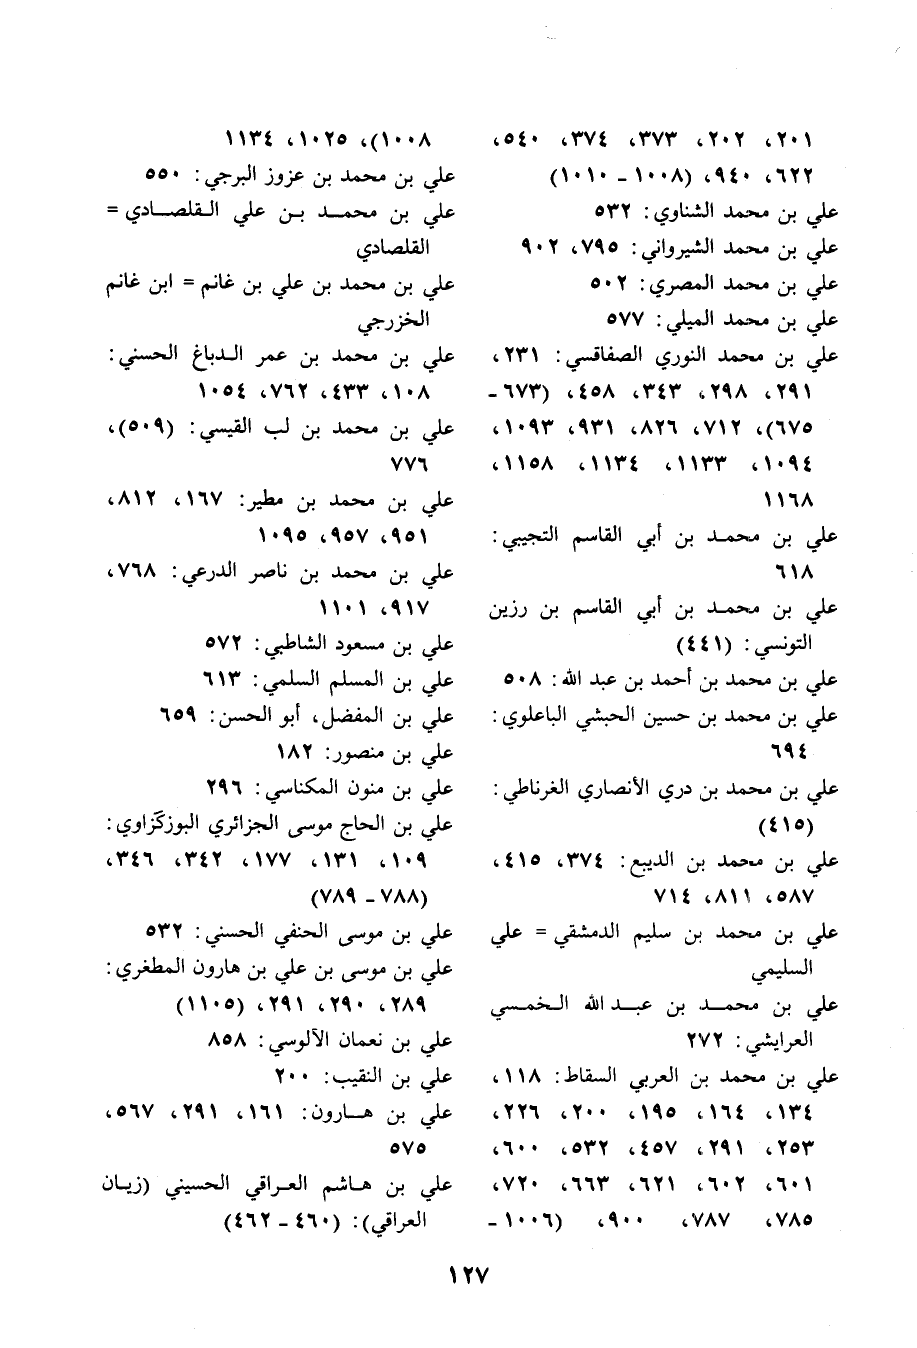 ٢٠١، ٢٠٢، ٣٧٣، ٣٧٤، ٥٤٠،
٦٢٢، ٩٤٠، (١٠٠٨ - ١٠١٠)
علي بن محمد الشناوي: ٥٣٢
علي بن محمد الشيرواني: ٧٩٥، ٩٠٢
علي بن محمد المصري: ٥٠٢
علي بن محمد الميلي: ٥٧٧
علي بن محمد النوري الصفاقسي: ٢٣١،
٢٩١، ٢٩٨، ٣٤٣، ٤٥٨، (٦٧٣ -
٦٧٥)، ٧١٢، ٨٢٦، ٩٣١، ١٠٩٣،
١٠٩٤، ١١٣٣، ١١٣٤، ١١٥٨،
١١٦٨
علي بن محمد بن أبي القاسم التجيبي:
٦١٨
علي بن محمد بن أبي القاسم بن رزين
التونسي: (٤٤١)
علي بن محمد بن أحمد بن عبد الله: ٥٠٨
علي بن محمد بن حسين الحبشي الباعلوي:
٦٩٤
علي بن محمد بن دري الأنصاري الغرناطي:
(٤١٥)
علي بن محمد بن الديبع: ٣٧٤، ٤١٥،
٥٨٧، ٨١١، ٧١٤
علي بن محمد بن سليم الدمشقي = علي
السليمي
علي بن محمد بن عبد الله الخمسي
العرايشي: ٢٧٢
علي بن محمد بن العربي السقاط: ١١٨،
١٣٤، ١٦٤، ١٩٥، ٢٠٠، ٢٢٦،
٢٥٣، ٢٩١، ٤٥٧، ٥٣٢، ٦٠٠،
٦٠١، ٦٠٢، ٦٢١، ٦٦٣، ٧٢٠،
٧٨٥، ٧٨٧، ٩٠٠، (١٠٠٦ -
١٠٠٨)، ١٠٢٥، ١١٣٤
علي بن محمد بن عزوز البرجي: ٥٥٠
علي بن محمد بن علي القلصادي =
القلصادي
علي بن محمد بن علي بن غانم = ابن غانم
الخزرجي
علي بن محمد بن عمر الدباغ الحسني:
١٠٨، ٤٣٣، ٧٦٢، ١٠٥٤
علي بن محمد بن لب القيسي: (٥٠٩)،
٧٧٦
علي بن محمد بن مطير: ١٦٧، ٨١٢،
٩٥١، ٩٥٧، ١٠٩٥
علي بن محمد بن ناصر الدرعي: ٧٦٨،
٩١٧، ١١٠١
علي بن مسعود الشاطبي: ٥٧٢
علي بن المسلم السلمي: ٦١٣
علي بن المفضل، أبو الحسن: ٦٥٩
علي بن منصور: ١٨٢
علي بن منون المكناسي: ٢٩٦
علي بن الحاج موسى الجزائري البوزكزاوي:
١٠٩، ١٣١، ١٧٧، ٣٤٢، ٣٤٦،
(٧٨٨ - ٧٨٩)
علي بن موسى الحنفي الحسني: ٥٣٢
علي بن موسى بن علي بن هارون المطغري:
٢٨٩، ٢٩٠، ٢٩١، (١١٠٥)
علي بن نعمان الآلوسي: ٨٥٨
علي بن النقيب: ٢٠٠
علي بن هارون: ١٦١، ٢٩١، ٥٦٧،
٥٧٥
علي بن هاشم العراقي الحسيني (زيان
العراقي): (٤٦٠ - ٤٦٢)
١٢٧